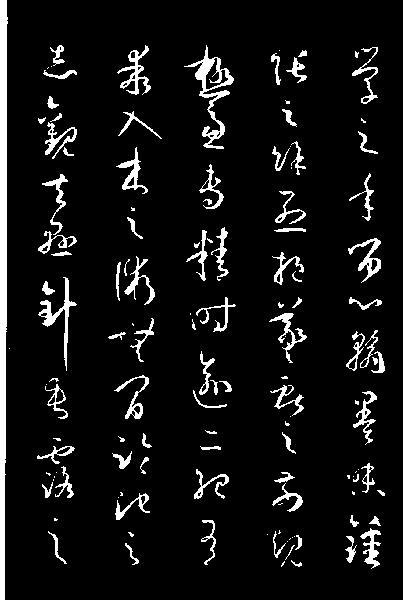 学之年留心翰墨味鍾
張之餘烈挹羲獻之前規
極慮專精時逾二紀有
乖入木之術無間臨池之
志觀夫懸針垂露之